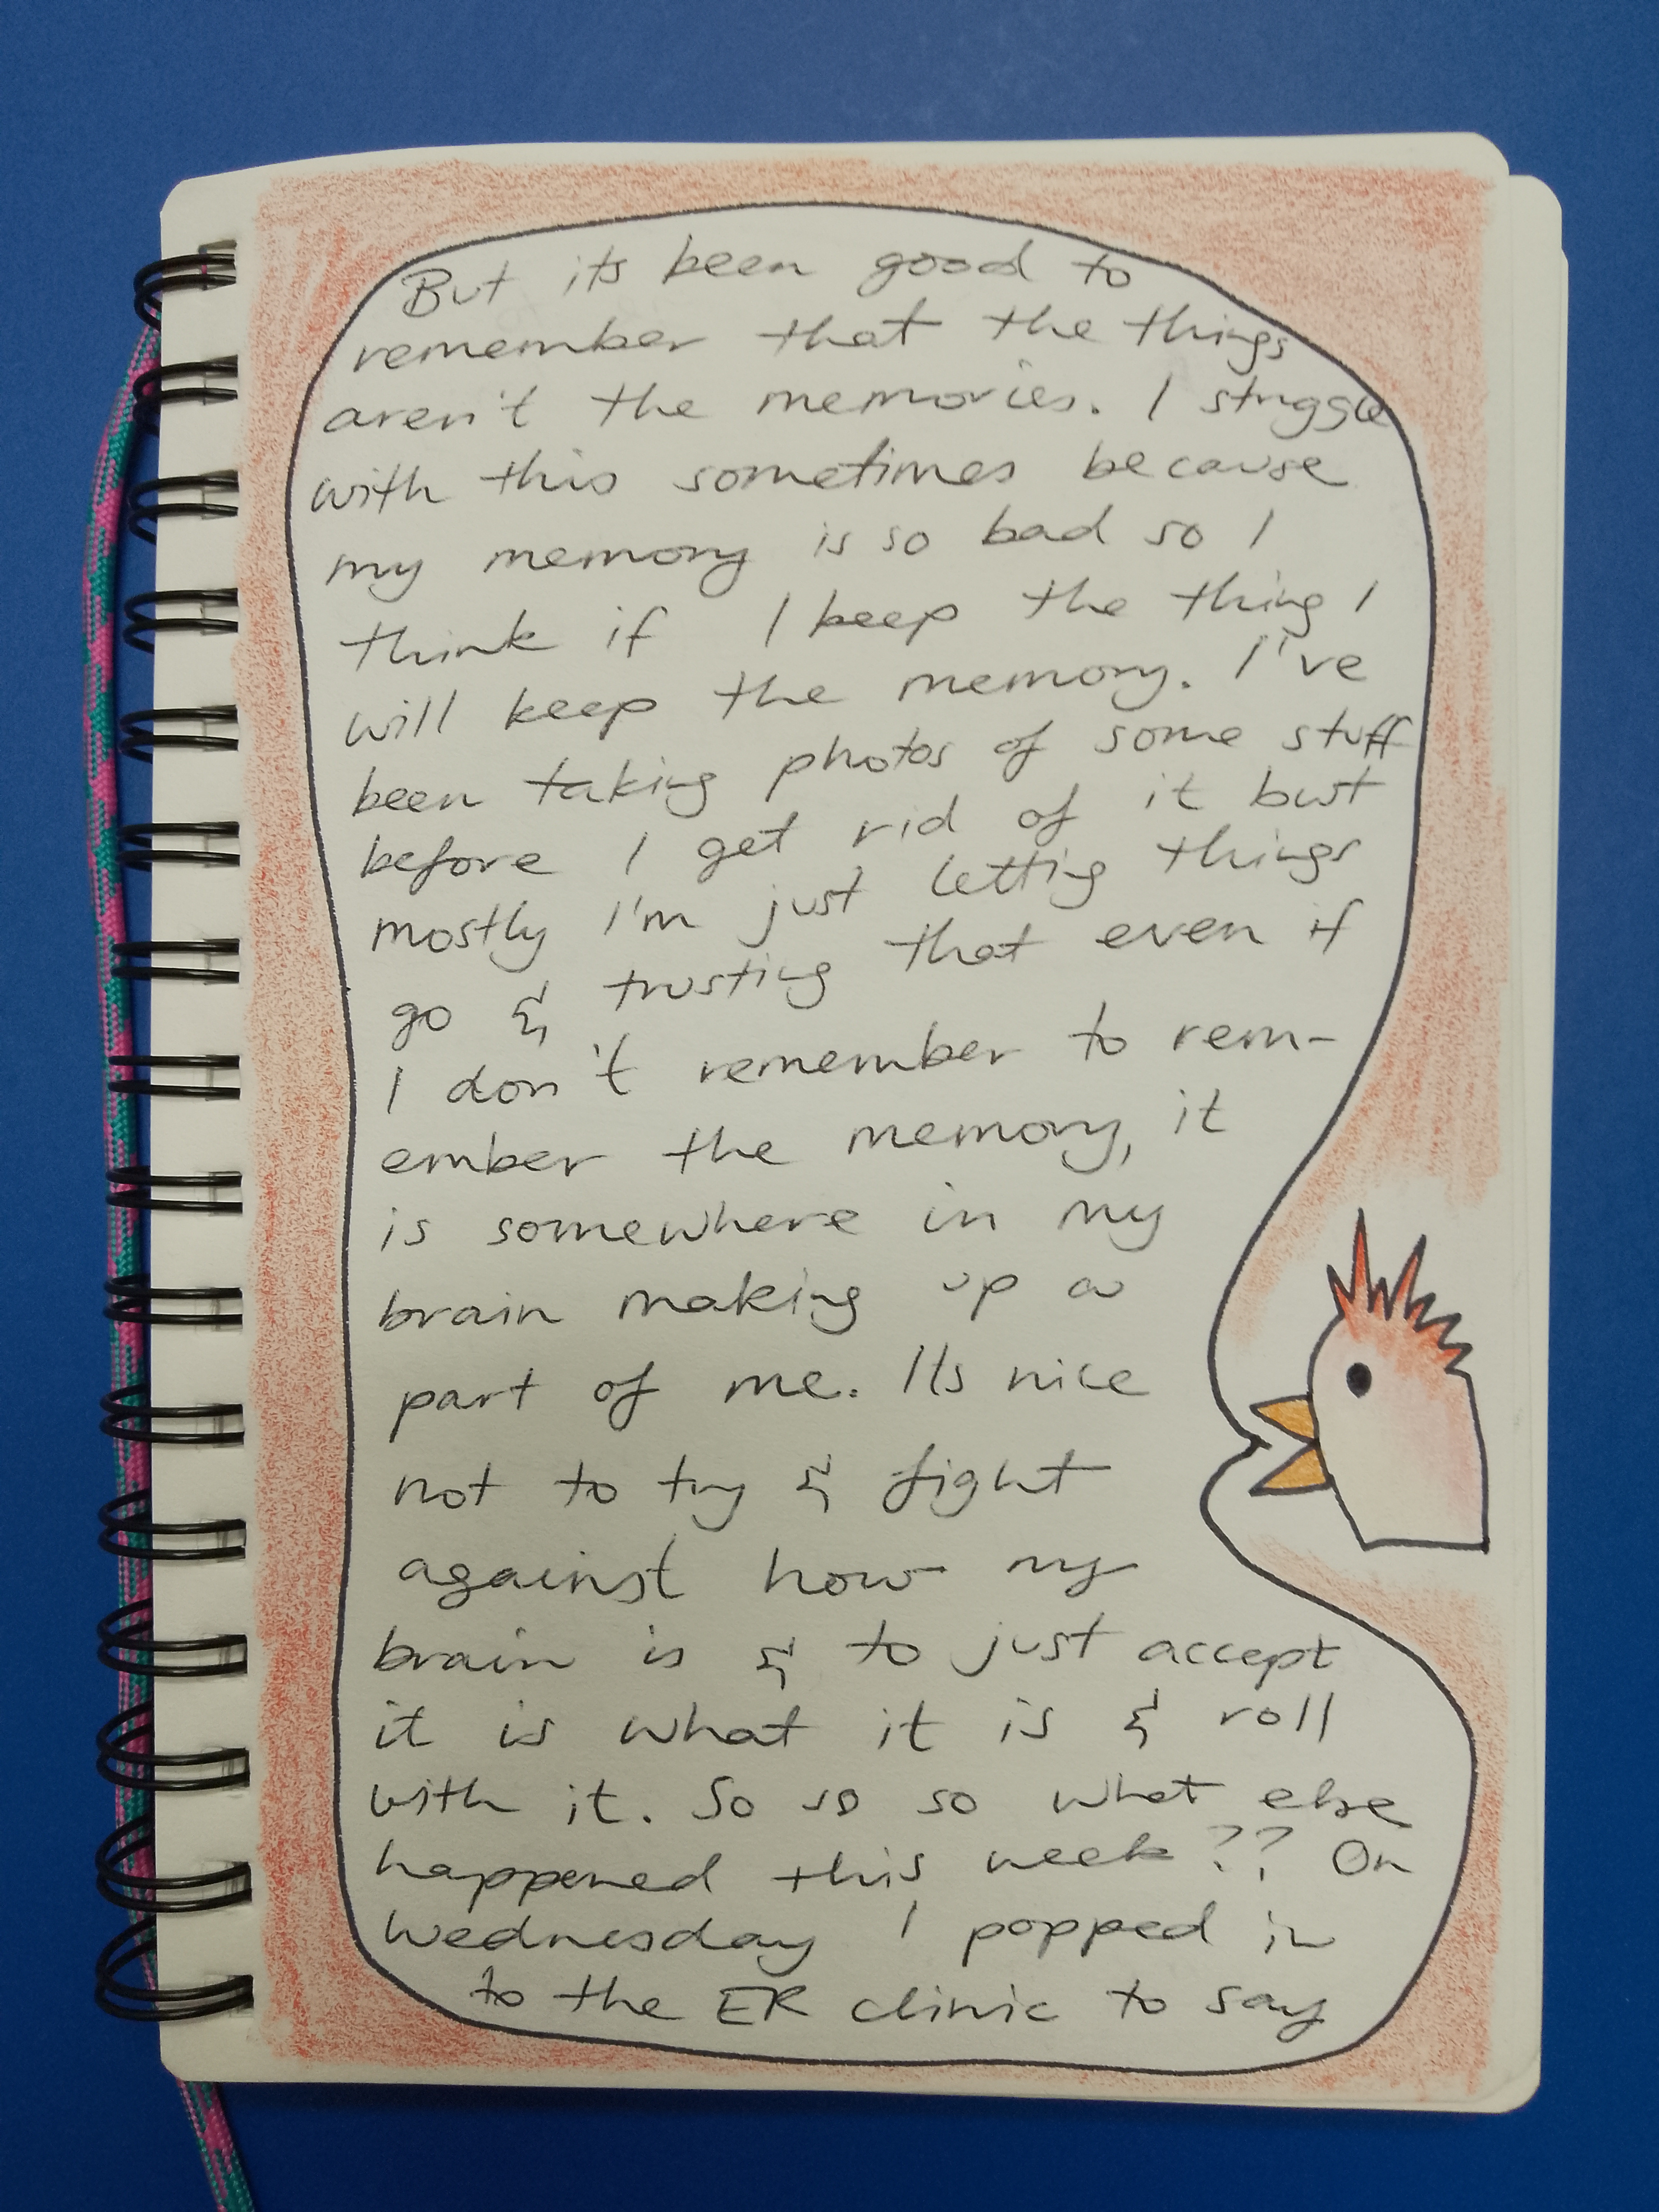 But its been good to
remember that the things
aren't the memories. I struggle
with this sometimes because
my memory is so bad so I
think if I keep the thing I
will keep the memory. I've
been taking photos of some stuff
before I get rid of it but
mostly I'm just letting things
go & trusting that even if
I don't remember to rem-
ember the memory, it
is somewhere in my
brain making up a
part of me. Its nice
not to try & fight
against how my
brain is & to just accept
it is what it is & roll
with it. So so so what else
happened this week?? On
Wednesday I popped in
to the ER clinic to say